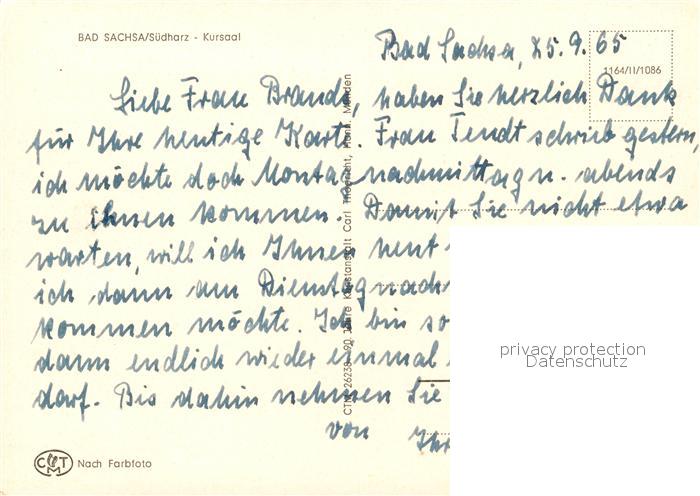 BAD SACHSA/Südharz - Kursaal
Bad Sachsa, 25.9.65
1164/II/1086
Liebe Frau Brandt, haben Sie herzlich Dank
für Ihre heutige Karte. Frau Tendt schrieb gestern,
ich möchte doch Montag nachmittag u. abends
zu ihnen kommen. Damit Sie nicht etwa
warten, will ich Ihnen heut
ich dann am Dienstag nach
kommen möchte. Ich bin so
dann endlich wieder einmal
darf. Bis dahin nehmen Sie
von Ihr
CTM 26238 90 Jahre Kunstanstalt Carl Thoericht, Hann. Münden
privacy protection
Datenschutz
CTM Nach Farbfoto